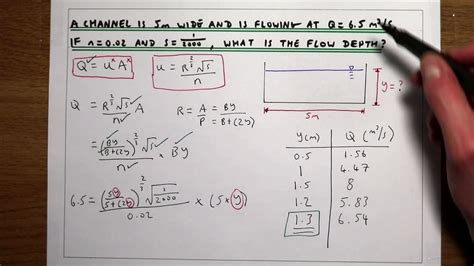 A CHANNEL IS 5m WIDE AND IS FLOWING AT Q = 6.5 m³/s.
IF n = 0.02 AND S = 1/2000, WHAT IS THE FLOW DEPTH?
Q = u × A
u = R^(2/3) √s / n
y = ?
5m
Q = R^(2/3) √s / n A
R = A/P = By/(B+(2y))
= (By/(B+(2y)))^(2/3) √s / n × By
6.5 = (5y/(5+(2y)))^(2/3) √(1/2000) / 0.02 × (5×y)
y(m) Q (m³/s)
0.5 1.56
1 4.47
1.5 8
1.2 5.83
1.3 6.54